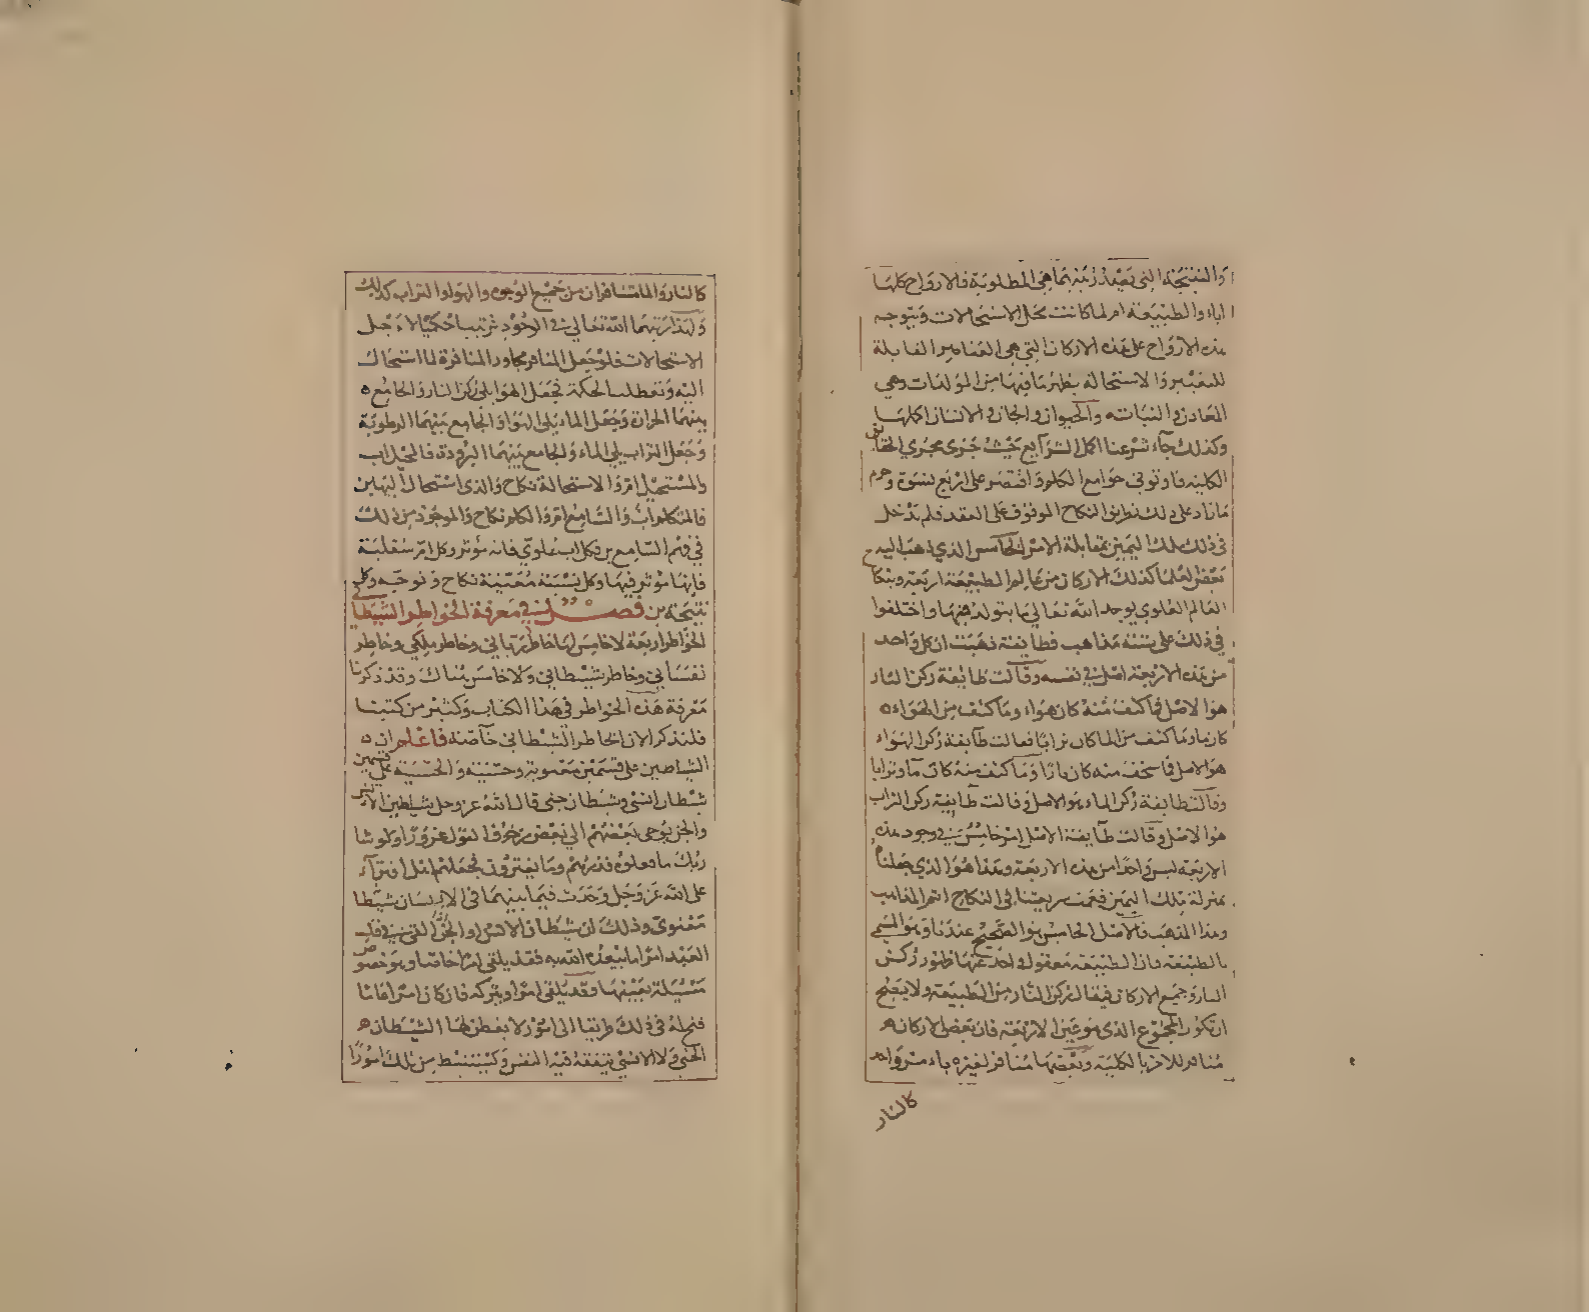 والنتيجة التي تعقد ... هي المطلوبة فالارواح كلها
اباء والطبيعة ام لما كانت محل الاستحالات وبتوجه
هذه الارواح على هذه الاركان التي هي العناصر القابلة
للتغيير والاستحالة يظهر ما فيها من المولدات وهي
المعادن والنبات والحيوان والجان والانسان اكلها
وكذلك جاء شرعنا اكمل الشرايع حيث جرى مجرى الحقائق
الكلية فاوتى جوامع الكلم واقتصر على اربع نسوة وحرم
ما زاد على ذلك بطريق النكاح الموقوف على العقد فلم يدخل
في ذلك ملك اليمين بمقابلة الامر الخامس الذي ذهب اليه
بعض العلما كذلك الاركان من عالم الطبيعة اربعة وبنكاح
العالم العلوي يوجد الله تعالى ما يتولد فيها واختلفوا
في ذلك على ستة مذاهب فطائفة ذهبت ان كل واحد
من هذه الاربعة اصل في نفسه وقالت طائفة ركن النار
هو الاصل فما كثف منه كان هواء وما كثف من الهواء
كان ماء وما كثف من الما كان ترابا وقالت طائفة ركن الهواء
هو الاصل فما سخف منه كان نارا وما كثف منه كان ما وترابا
وقالت طائفة ركن الماء هو الاصل وقالت طائفة ركن التراب
هو الاصل وقالت طائفة الاصل امر خامس في وجود هذه
الاربعة ليس واحدا من هذه الاربعة وهذا هو الذي جعلناه
بمنزلة ملك اليمين فعمت شريعتنا في النكاح اتم المذاهب
وهذا المذهب فالاصل الخامس هو الصحيح عندنا وهو المسمى
بالطبيعة فان الطبيعة معقول واحد عنها ظهور ركن
النار وجميع الاركان فيقال ركن النار من الطبيعة ولا يصح
ان تكون المجموع الذي هو عين الاربعة فان بعض الاركان
منافر للاخر بالكلية وبعضها منافر لغيره بامر واحد
كالنار
كالنار والما متنافران من جميع الوجوه والهوا والتراب كذلك
ولهذا رتبهما الله تعالى في الوجود ترتيبا حكميا لاجل
الاستحالات فلو جعل المنافر مجاور المنافرة لما استحال
اليه وتعطلت الحكمة فجعل الهوا يلي ركن النار والجامع
بينهما الحرارة وجعل الماء يلي الهوا والجامع بينهما الرطوبة
وجعل التراب يلي الماء والجامع بينهما البرودة فالمحيل اب
والمستحيل ام والاستحالة نكاح والذي استحال اليه ابن
فالمتكلم اب والسامع ام والكلم نكاح والموجود من ذلك
في فهم السامع ابن فكل اب علوي فانه مؤثر وكل ام سفلية
فانها مؤثر فيها وكل نسبة معينة نكاح وتوجه وكل
نتيجة ابن فصل في معرفة الخواطر الشيطانية
الخواطر اربعة لا خامس لها خاطر رباني وخاطر ملكي وخاطر
نفساني وخاطر شيطاني ولا خامس هناك وقد ذكرنا
معرفة هذه الخواطر في هذا الكتاب وكثير من كتبنا
فلنذكر الان الخاطر الشيطاني خاصة فاعلم ان
الشياطين على قسمين معنوية وحسية والحسية على قسمين
شيطان انسي وشيطان جني قال الله عز وجل شياطين الانس
والجن يوحي بعضهم الى بعض زخرف القول غرورا ولو شا
ربك ما فعلوه فذرهم وما يفترون فجعلهم اهل افتراء
على الله عز وجل وحدث فيما بينهما في الانسان شيطانا
معنوي وذلك ان شيطان الانس او الجن القى في قلب
العبد امرا ما يبعده الله به فقد يلقى امرا خاصا وهو خصوص
مسئلة بعينها وقد يلقى امرا ويتركه فان كان امرا عاما
فتح له في ذلك طريقا الى امور لا يفطن لها الشيطان
الجني ولا الانسي تتفقه فيه النفس وتستنبط من تلك امورا